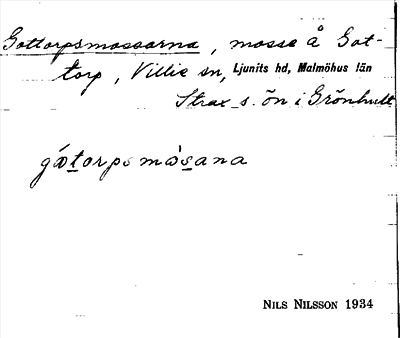 Gottorpsmossarna, mosse å Got-
torp, Villie sn, Ljunits hd, Malmöhus län
Strax s. ön i Grönhult
gåtorpsmósana
NILS NILSSON 1934